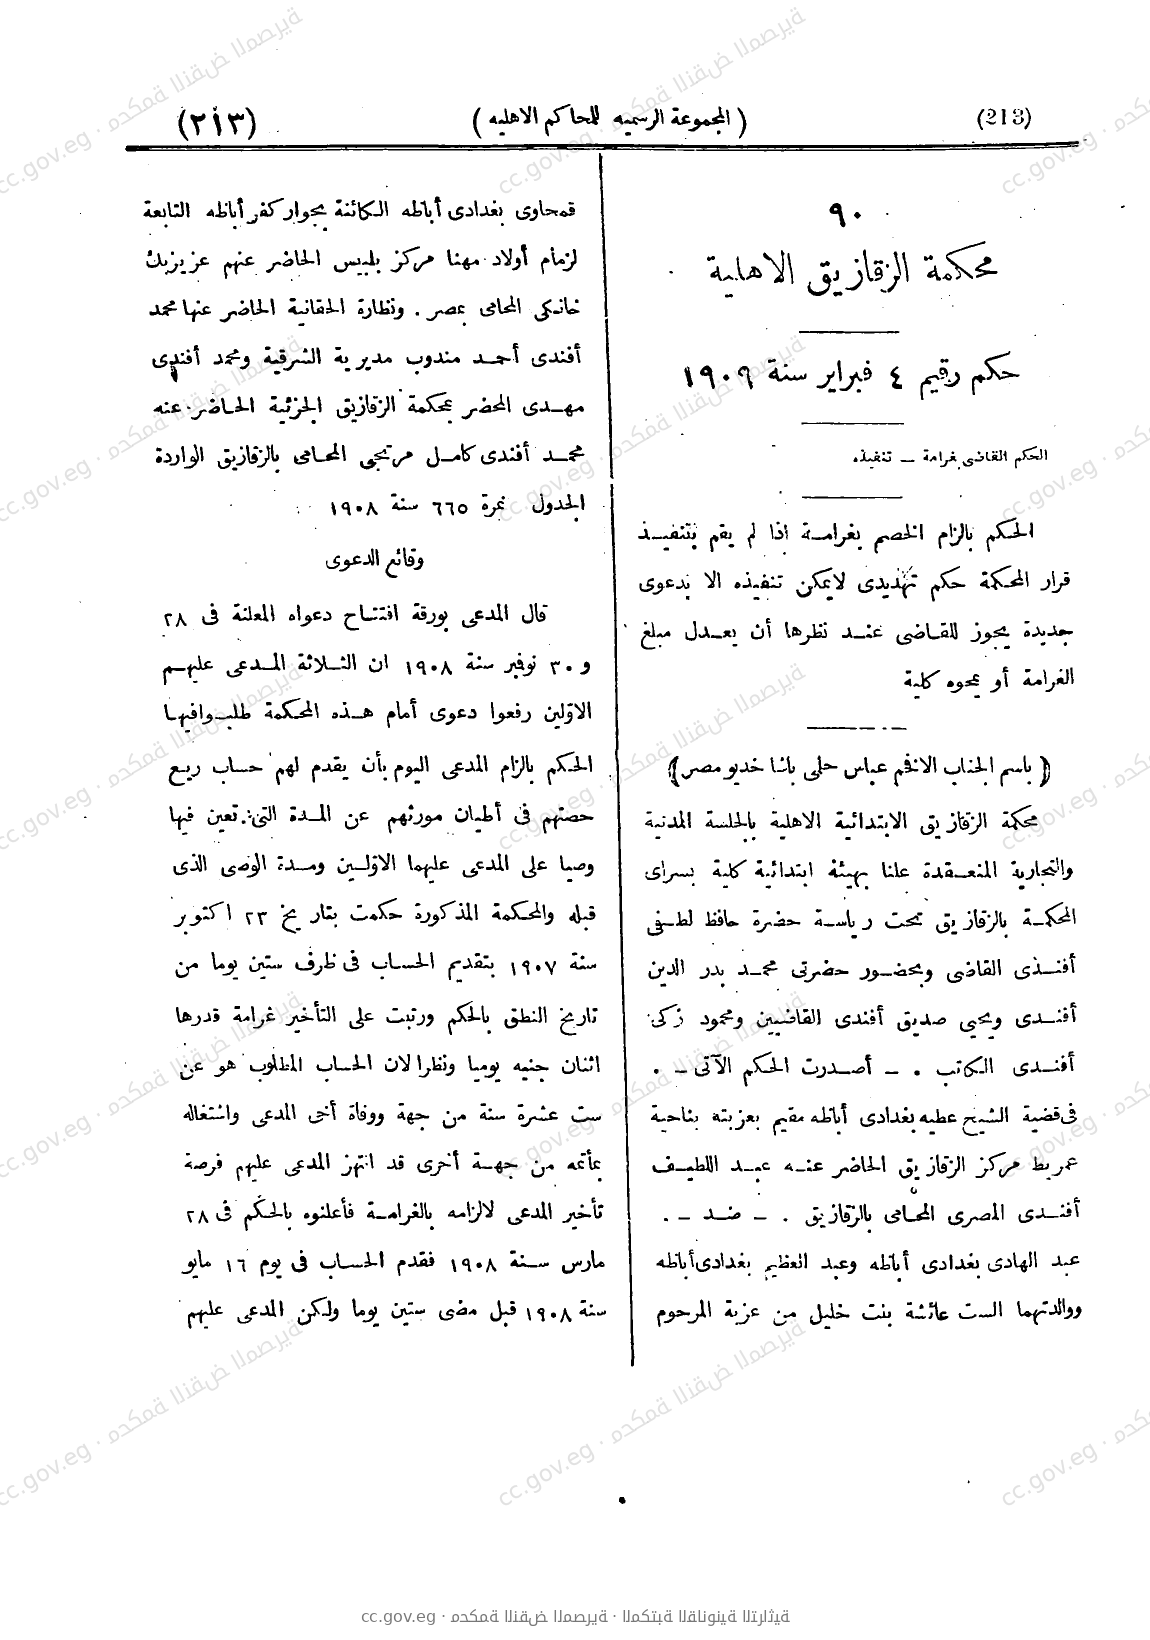 (213)
( المجموعة الرسميه للمحاكم الاهليه )
(٢١٣)
٩٠
محكمة الزقازيق الاهلية
حكم رقيم ٤ فبراير سنة ١٩٠٩
الحكم القاضى بغرامة – تنفيذه
الحكم بالزام الخصم بغرامة اذا لم يقم بتنفيذ
قرار المحكمة حكم تهديدى لايمكن تنفيذه الا بدعوى
جديدة يجوز للقاضى عند نظرها أن يعدل مبلغ
الغرامة أو يمحوه كلية
( باسم الجناب الافخم عباس حلمى باشا خديو مصر )
محكمة الزقازيق الابتدائية الاهلية بالجلسة المدنية
والتجارية المنعقدة علنا بهيئة ابتدائية كلية بسراى
المحكمة بالزقازيق تحت رياسة حضرة حافظ لطفى
أفندى القاضى وبحضور حضرتى محمد بدر الدين
أفندى ويحيى صديق أفندى القاضيين ومحمود زكى
أفندى الكاتب . – أصدرت الحكم الآتى – .
فى قضية الشيخ عطيه بغدادى أباظه مقيم بعزبته بناحية
عمريط مركز الزقازيق الحاضر عنه عبد اللطيف
أفندى المصرى المحامى بالزقازيق . – ضد – .
عبد الهادى بغدادى أباظه وعبد العظيم بغدادى أباظه
ووالدتهما الست عائشة بنت خليل من عزبة المرحوم
قمحاوى بغدادى أباظه الكائنة بجوار كفر أباظه التابعة
لزمام أولاد مهنا مركز بلبيس الحاضر عنهم عزيز بك
خانكى المحامى بمصر . ونظارة الحقانية الحاضر عنها محمد
أفندى أحمد مندوب مديرية الشرقية ومحمد أفندى
مهدى المحضر بمحكمة الزقازيق الجزئية الحاضر عنه
محمد أفندى كامل مرتجى المحامى بالزقازيق الواردة
الجدول نمرة ٦٦٥ سنة ١٩٠٨
وقائع الدعوى
قال المدعى بورقة افتتاح دعواه المعلنة فى ٢٨
و ٣٠ نوفبر سنة ١٩٠٨ ان الثلاثة المدعى عليهم
الاولين رفعوا دعوى أمام هذه المحكمة طلبوا فيها
الحكم بالزام المدعى اليوم بأن يقدم لهم حساب ريع
حصتهم فى أطيان مورثهم عن المدة التى تعين فيها
وصيا على المدعى عليهما الاولين ومدة الوصى الذى
قبله والمحكمة المذكورة حكمت بتاريخ ٢٣ اكتوبر
سنة ١٩٠٧ بتقديم الحساب فى ظرف ستين يوما من
تاريخ النطق بالحكم ورتبت على التأخير غرامة قدرها
اثنان جنيه يوميا ونظرا لان الحساب المطلوب هو عن
ست عشرة سنة من جهة ووفاة أخى المدعى واشتغاله
بمأتمه من جهة أخرى قد انتهز المدعى عليهم فرصة
تأخير المدعى لالزامه بالغرامة فأعلنوه بالحكم فى ٢٨
مارس سنة ١٩٠٨ فقدم الحساب فى يوم ١٦ مايو
سنة ١٩٠٨ قبل مضى ستين يوما ولكن المدعى عليهم
cc.gov.eg · محكمة النقض المصرية · المكتبة القانونية التراثية